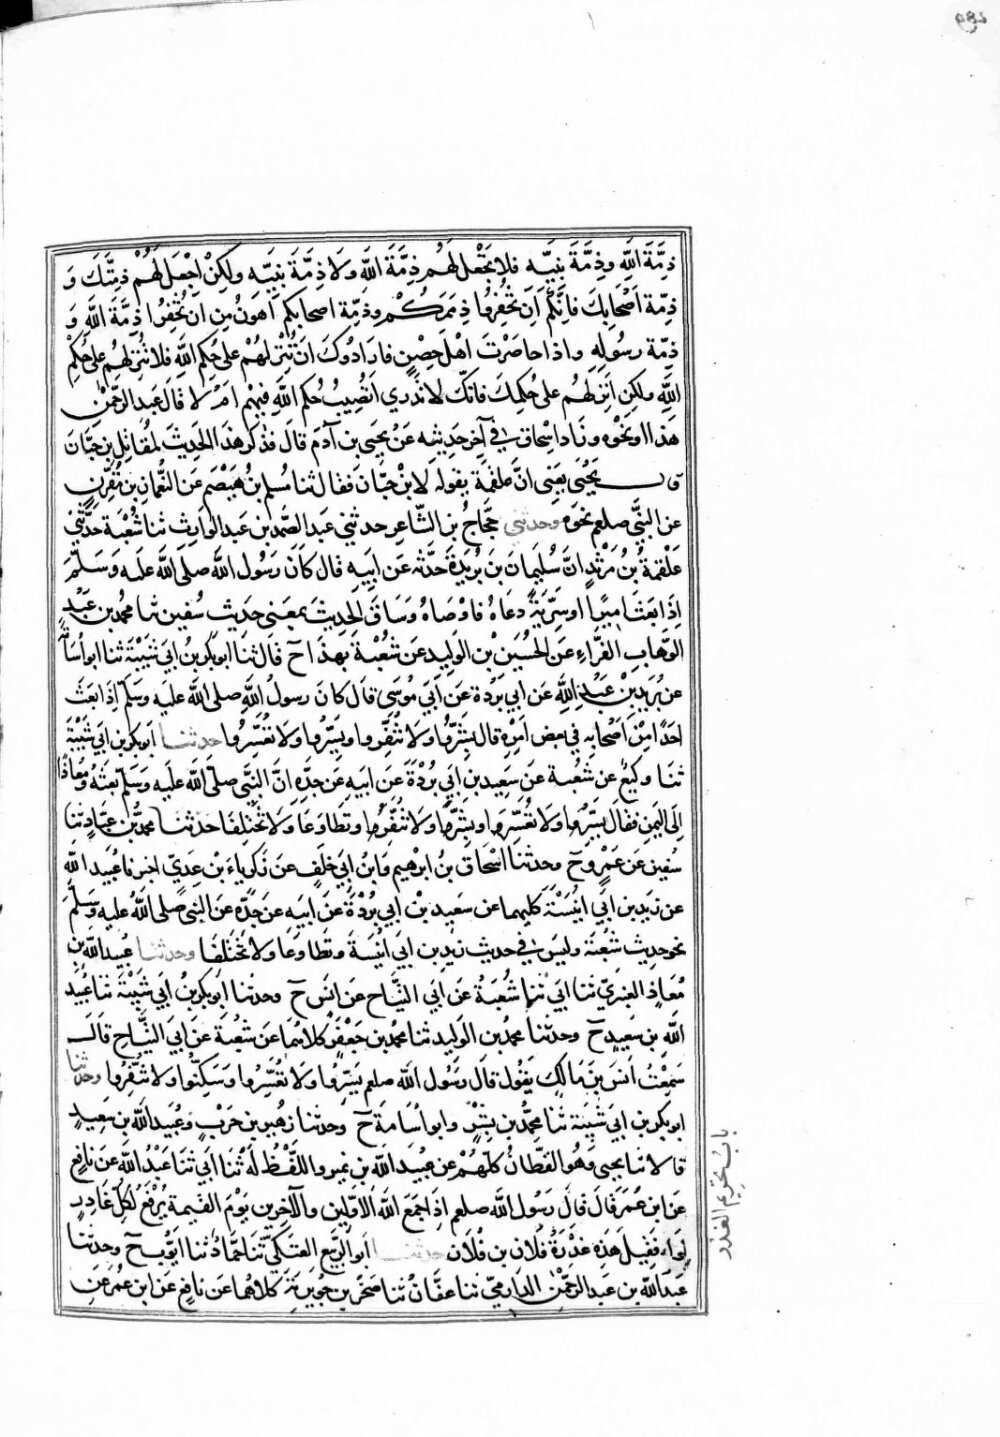 ذِمَّةَ اللَّه وذِمَّةَ نبيِّه فلا تجْعَل لهُم ذِمَّةَ اللَّه ولا ذِمَّةَ نبيِّه ولكنْ اجْعَل لهُمْ ذمَّتَكَ وَ
ذِمّة اَصْحابكَ فانكُم اَن تُخْفِروا ذِمَمَكُمْ وذمّة اصحابكم اَهونُ مِن اَن تُخْفِرُوا ذِمَّةَ اللَّهِ وَ
ذمّة رسُولهِ واذا حاصَرْتَ اهْلَ حِصْنٍ فارادُوكَ ان تُنْزِلَهُمْ على حُكمِ اللَّهِ فلا تُنزِلهُم على حُكمِ
اللَّهِ ولكن اَنزِلهُم على حُكمِكَ فانكَ لا تَدْري اَتُصِيبُ حُكم اللَّهِ فيهِم امْ لا قالَ عبد الرحمٰن
هَذا اوْ نحْوه وزَادَ اِسْحاق في آخِر حَدِيثهِ عَنْ يحيى بن آدَمَ قالَ فذكرتُ هذا الحَدِيثَ لمُقاتِل بن حَيَّانَ
قال يحْيَى يَعْنِى انَّ علقمَةَ يقوله لابْنِ حيَّانَ فقال ثنا مُسْلِم بنُ هَيْصَمٍ عَن النُّعْمانِ بن مُقرِّنٍ
عن النبيّ صلعم نحوَه وحدثني حجَّاجُ بن الشّاعِر حدثني عبد الصَّمَد بن عَبد الوَارِث ثنا شُعْبَة حَدَّثني
عَلقمةُ بنُ مَرْثدٍ انَّ سُليمانَ بن بُرَيْدَة حَدَّثه عَن ابيهِ قال كانَ رَسُول اللَّه صلى اللَّه عليه وسَلّمَ
اِذا بَعَثَ امِيرًا او سَرِيّةً دعَاهُ فاوْصَاهُ وسَاقَ الحَدِيثَ بمعنى حَدِيث سُفين ثنا محمد بن عَبْدِ
الوَهّابِ الفرّاء عَن الحُسَيْن بن الوَلِيد عَن شُعْبَةَ بهذا ح قال ثنا ابو بَكر بنُ ابي شَيْبَة ثنا ابو أُسَامَة
عن بُرَيد بْنِ عَبْدِ اللَّهِ عَن ابي بُرْدَة عَن ابي مُوسَى قالَ كانَ رسولُ اللَّهِ صلى اللَّه عليه وسَلّم اِذا بَعَثَ
احَدًا مِنْ اَصْحابه في بعض امْرِه قال بشِّرُوا وَلا تُنَفِّروا ويَسِّروا ولا تعَسِّرُوا حدثنا ابو بكر بن ابي شَيْبَة
ثنا وَكيعٌ عن شُعْبة عَن سَعِيد بن ابي بُرْدَةَ عَن ابيهِ عَن جَدِّه انَّ النّبيَّ صلى اللَّه عليه وسَلّم بعَثَهُ ومُعاذًا
اِلَى اليَمن فقال يَسِّرُوا ولا تُعَسِّروا وبَشِّروا ولا تُنَفِّروا وتَطاوَعَا ولا تختَلِفا حَدثنا محمد بن عبَّادٍ ثنا
سفين عَن عَمْرٍو ح وحدثنا اسْحاق بنُ ابرهيم وَابنُ ابي خَلَفٍ عَن زَكرِياءَ بْن عَدِيّ اخبرنا عُبيد اللَّه
عن زَيدِ بن ابي اُنيسَة كلَيهما عن سعِيد بْن ابي بُرْدَةَ عَن ابيه عن جَدِّه عن النبي صَلى اللَّه عليه وَسلَّم
نحو حديث شُعْبَة وليسَ في حديث زيدِ بن ابي اُنيسَة وتَطاوَعَا ولا تختلِفا وحدثنا عُبيد اللَّه بن
مُعاذٍ العَنبَرِيُّ ثنا ابي ثنا شُعْبَةُ عن ابي التيَّاح عَن انَسٍ ح وحدثنا ابو بكر بنُ ابي شَيْبَة ثنا عُبيد
اللَّه بن سَعِيدٍ ح وحدثنا محمد بن الوَليد ثنا محمد بن جَعْفَرٍ كلاهُمَا عَن شُعْبَةَ عَن ابي التيَّاحِ قالَ
سَمِعْتُ انَسَ بنَ مَالِكٍ يَقُول قال رَسُول اللَّه صلعم يَسِّرُوا ولا تُعَسِّرُوا وَسَكِّنُوا ولا تُنَفِّرُوا وحدثنا
ابو بكر بن ابي شَيْبَة ثنا محمَّد بن بِشْرٍ وابو اُسَامَة ح وحدثنا زُهَير بن حَرْبٍ وعُبَيد اللَّه بن سَعِيدٍ
قالا ثنا يحيى وَهُو القَطّانُ كلّهُمْ عن عبيد اللَّه بن نمير واللَّفظ لَهُ ثنا ابي ثَنَا عُبَيدُ اللَّه عَن نافِعٍ
عَن ابن عُمَرَ قالَ قالَ رَسُول اللَّه صلعم اِذا جمَعَ اللَّه الاوَّلين والآخِرين يَوْمَ القيمةِ يُرْفَعُ لكلّ غادِرٍ
لِواء فقيل هَذِه غَدْرَةُ فُلان بن فُلان حدثنا ابو الرَّبيع العَتكيُّ ثنا حمّادٌ ثنا ايّوبُ ح وحدثنا
عَبد اللَّه بن عَبد الرَحْمٰن الدَارمِيّ ثنا عَفّانُ ثنا صَخرُ بن جُوَيرِيَة كلاهُما عَن نافِعٍ عَن ابن عُمَر عَن
باب تحريم الغدر